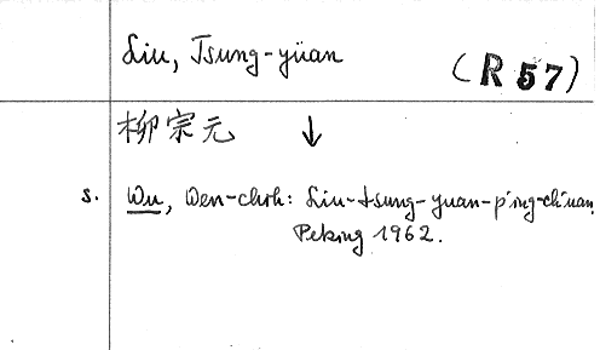 Liu, Tsung-yüan (R 57)
柳宗元 ↓
s. Wu, Wen-chih: Liu-tsung-yuan-p'ing-ch'uan.
Peking 1962.